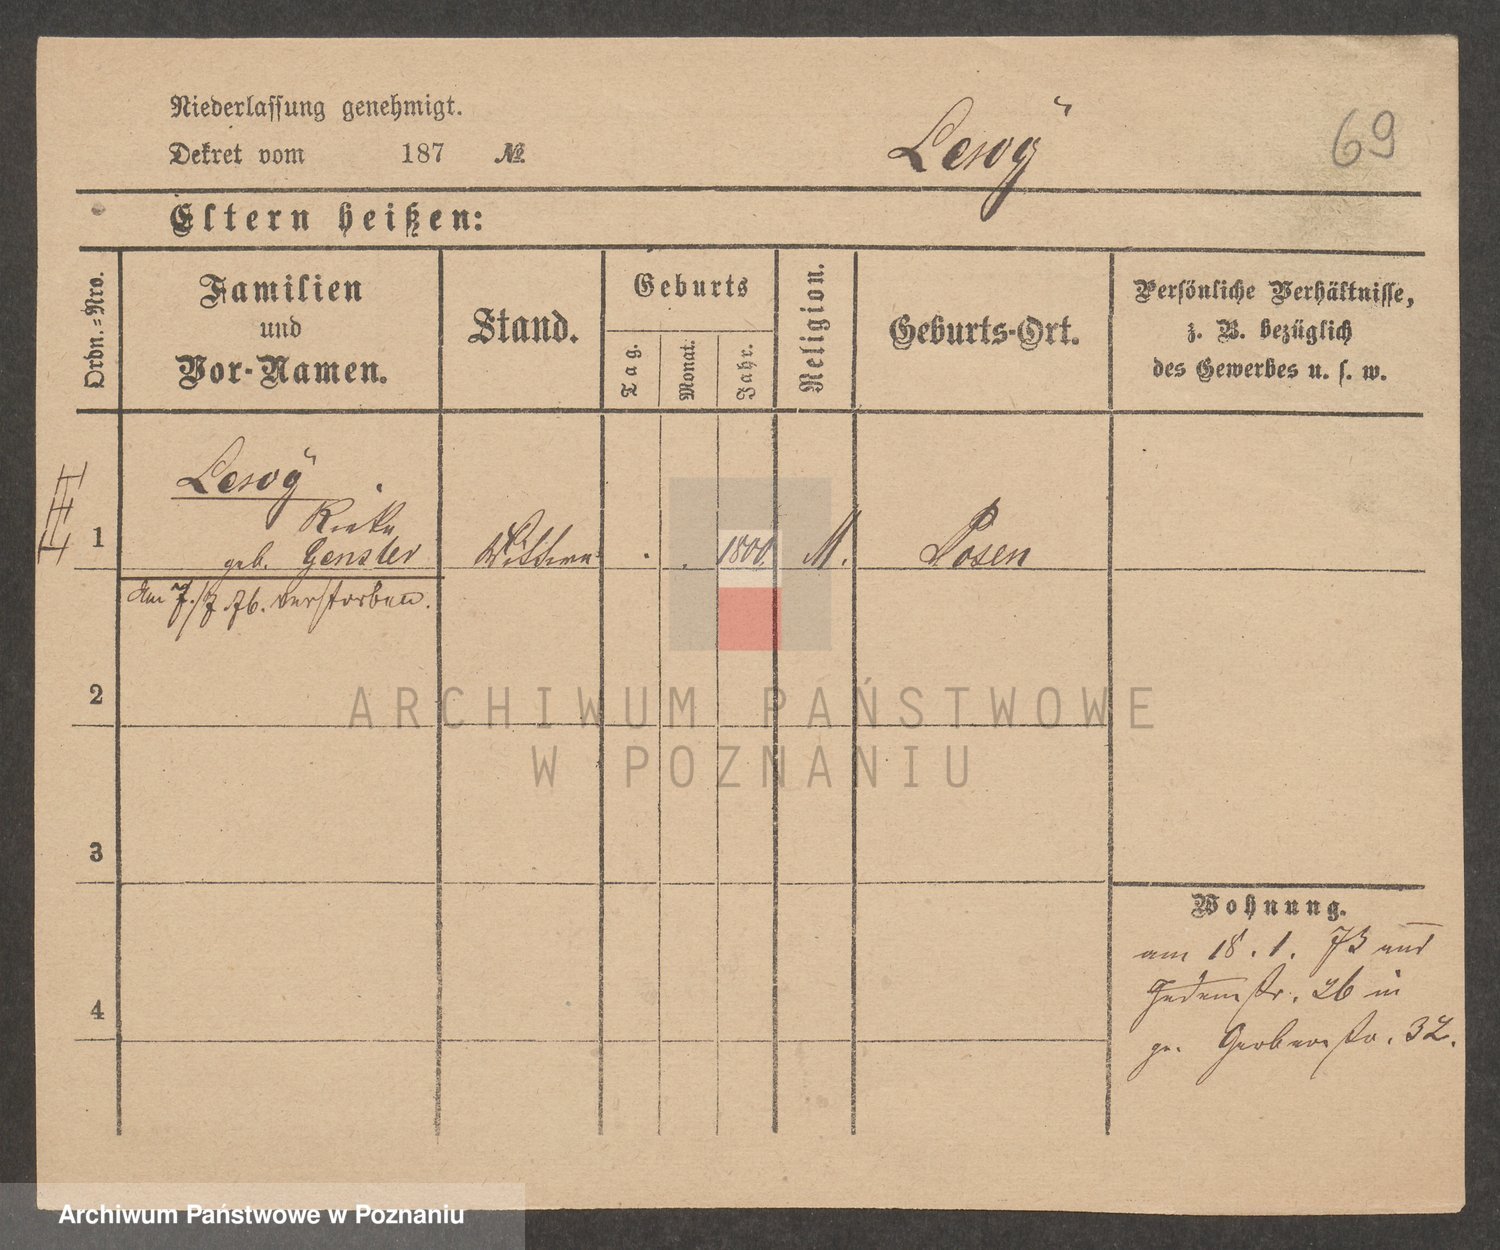 Niederlassung genehmigt.
Dekret vom 187 №
Lewÿ
69
Eltern heißen:
Ordn.-Nro.
Familien
und
Vor-Namen.
Stand.
Geburts
Tag.
Monat.
Jahr.
Religion.
Geburts-Ort.
Persönliche Verhältnisse,
z. B. bezüglich
des Gewerbes u. s. w.
Lewÿ
Rieke
1 geb. Genster Wittwe . . 1801. M. Posen
am 7./7 76. verstorben.
2
ARCHIWUM PAŃSTWOWE
W POZNANIU
3
Wohnung.
am 18. 1. 73 aus
26 in
gr. Gerberstr. 32.
4
Archiwum Państwowe w Poznaniu